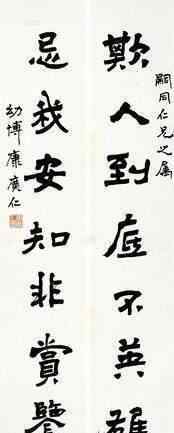 嗣同仁兄之属
欺人到底不英雄
忌我安知非賞鑒
幼博康廣仁